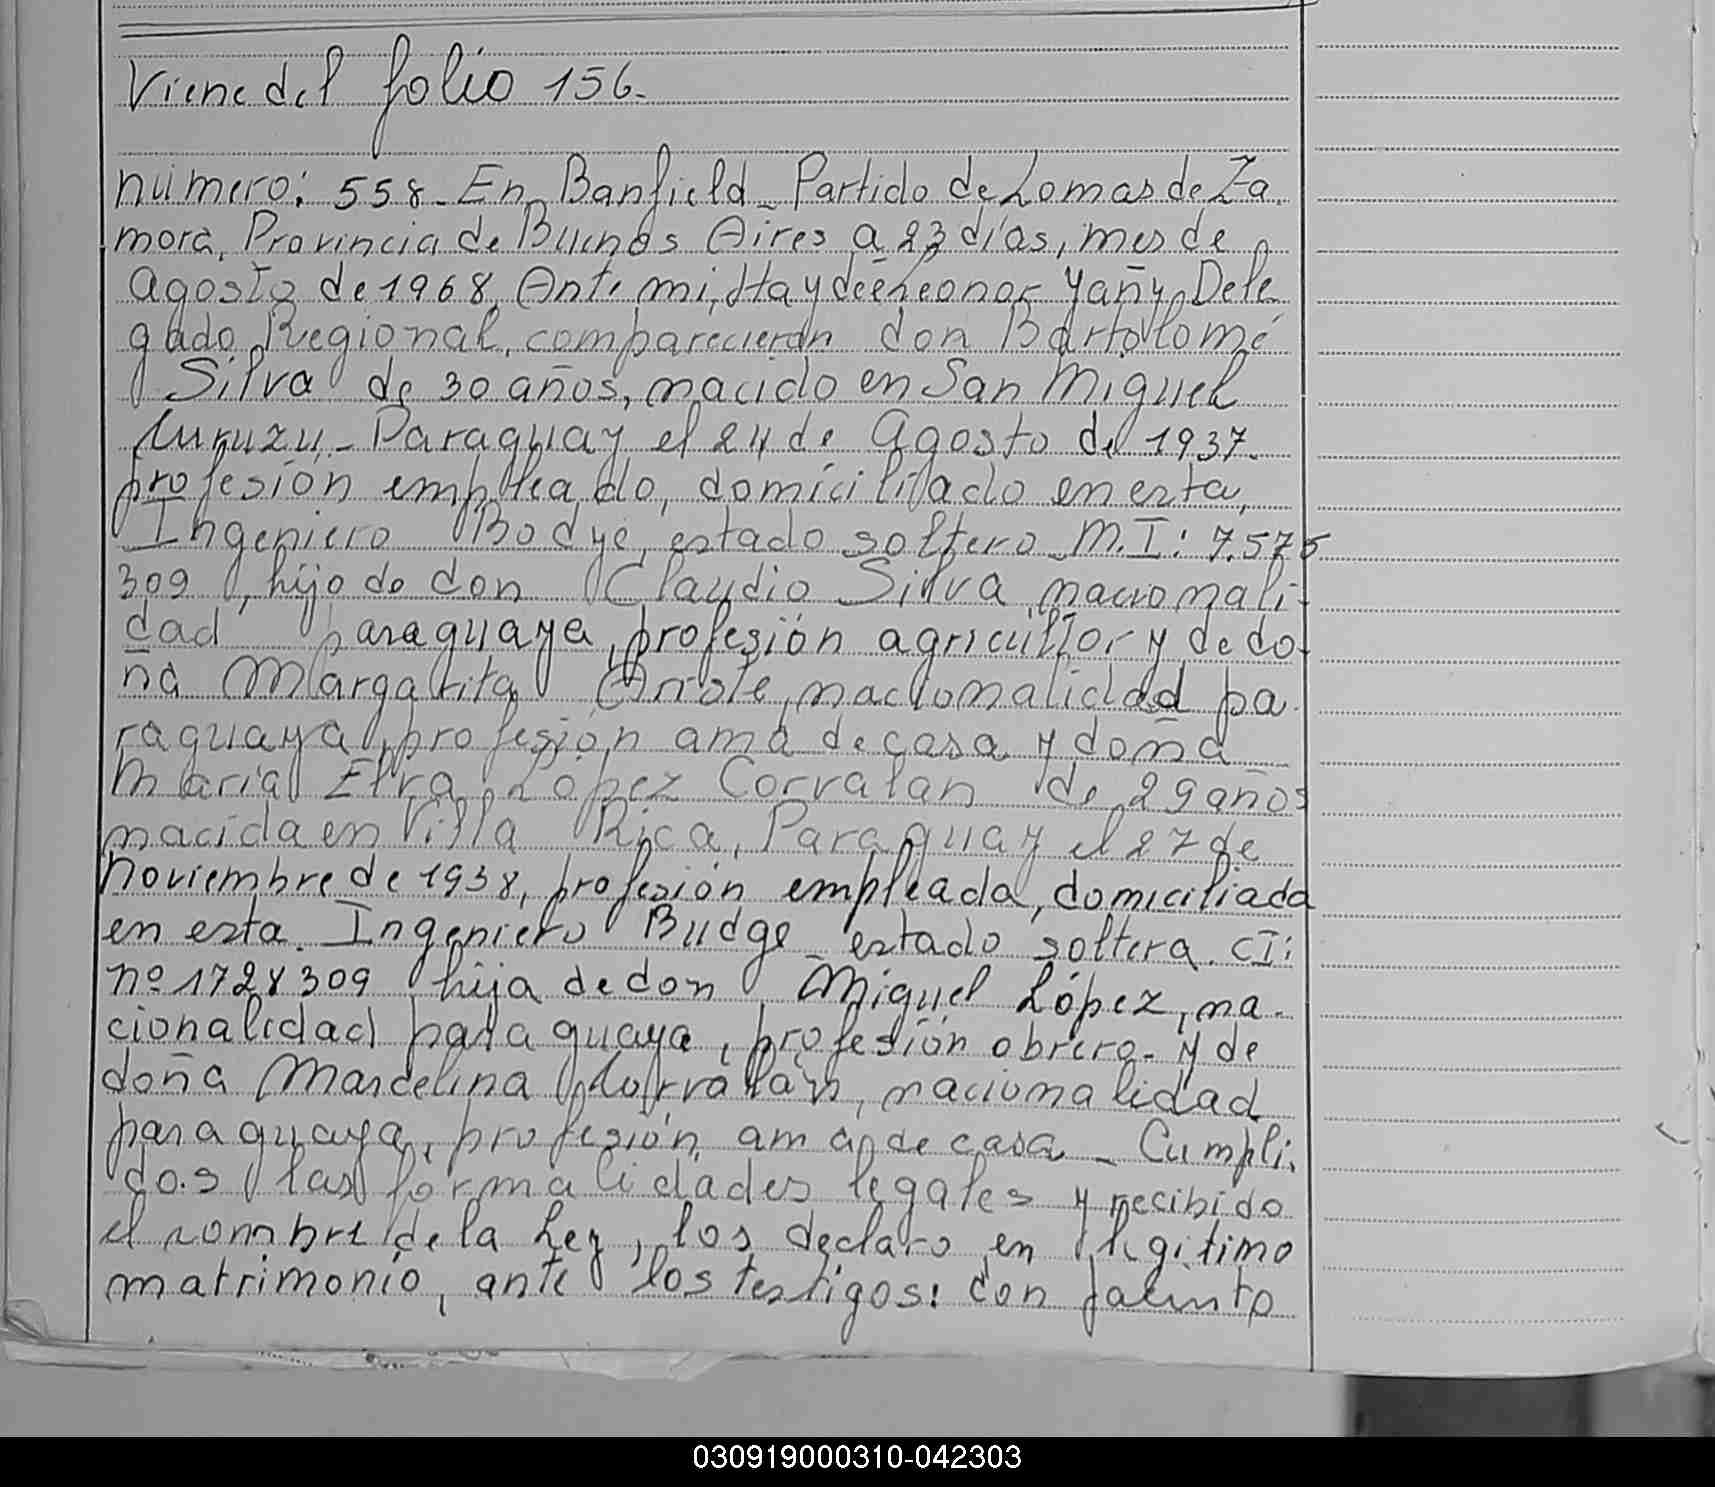 Viene del folio 156.
número: 558. En Banfield - Partido de Lomas de Za.
mora, Provincia de Buenos Aires a 23 días, mes de
agosto de 1968, Ante mi, Haydeé Leonor Dele
gado Regional, comparecieron don Bartolomé
Silva de 30 años, nacido en San Miguel
Curuzu, - Paraguay el 24 de Agosto de 1937.
profesión empleado, domiciliado en esta,
Ingeniero Bodge, estado soltero - M.I: 7.575
309, hijo de don Claudio Silva, nacionali-
dad paraguaya, profesión agricultor y de do-
ña Margarita nacionalidad pa.
raguaya, profesión ama de casa y doña
Maria Elva López Corvalan de 29 años
nacida en Villa Rica, Paraguay el 27 de
noviembre de 1938, profesión empleada, domiciliada
en esta. Ingeniero Budge - estado soltera. CI:
nº 1728309 hija de don Miguel López, na-
cionalidad paraguaya, profesión obrero - y de
doña Marcelina Corvalán, nacionalidad
paraguaya, profesión, ama de casa - Cumpli.
dos las formalidades legales y recibido
el nombre de la Ley, los declaro en legitimo
matrimonio, ante los testigos: don Jacinto
030919000310-042303